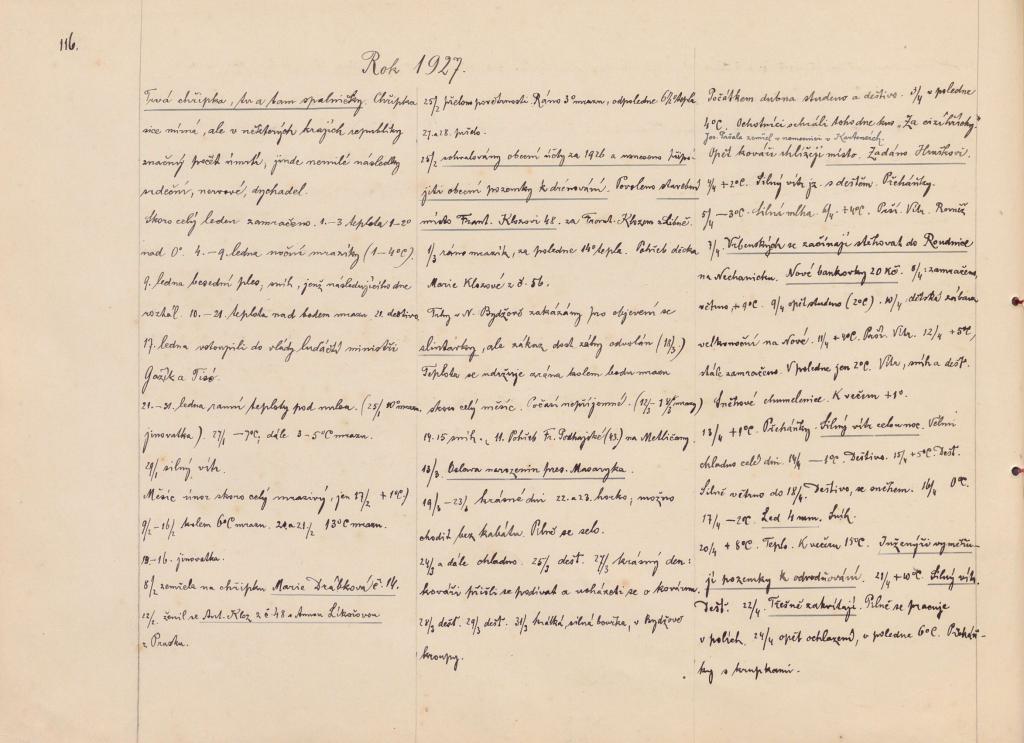 116.
Rok 1927.
Trvá chřipka, tu a tam spalničky. Chřipka
sice mírná, ale v některých krajích republiky
značný počet úmrtí, jinde nemilé následky
srdeční, nervové, dýchadel.
Skoro celý leden zamračeno. 1.-3 teplota 1-2°
nad 0°. 4.-9. ledna noční mrazíky (1-4°C).
9. ledna besední ples, sníh, jenž následujícího dne
roztál. 10.-21. teplota nad bodem mrazu 20. deštivo
17. ledna vstoupili do vlády luďáčtí ministři
Gažík a Tiso.
21.-31. ledna ranní teploty pod nulou. (25/1 10° mrazu,
jinovatka). 27/1 -7°C, dále 3-5°C mrazu.
29/1 silný vítr.
Měsíc únor skoro celý mrazivý, jen 17/2 +1°C)
9/2-16/2 kolem 6°C mrazu. 20 a 21/2 13°C mrazu.
10-16. jinovatka.
8/2 zemřela na chřipku Marie Drábková č. 14.
12/2. ženil se Ant. Kloz z č 48 s Annou Likešovou
z Prasku.
25/2 přelom povětrnosti. Ráno 3° mrazu, odpoledne 6½° tepla
27. a 28. pršelo.
26/2 schvalovány obecní účty za 1926 a usneseno připo-
jiti obecní pozemky k drénování. Povoleno stavební
místo Frant. Klozovi 48. za Front. Klozem
1/3 ráno mrazík, za poledne 14° tepla. Pohřeb děcka
Marie Klozové z č. 56.
Trhy v N. Bydžově zakázány pro objevení se
slintavky, ale zákaz dost záhy odvolán (18/3)
Teplota se udržuje zrána kolem bodu mrazu
skoro celý měsíc. Počasí nepříjemné.
14. 15 sníh. 11. Pohřeb Fr. Podhajské (43) na Metličany.
13/3. Oslava narozenin pres. Masaryka.
19/3-23/3 krásné dni 22. a 23. horko; možno
chodit bez kabátu. Pilně se selo.
24/3 a dále chladno. 25/3 déšť. 27/3 krásný den:
kováři přišli se podívat a ucházeti se o kovárnu.
28/3 déšť. 29/3 déšť. 31/3 krátká silná bouřka, v Bydžově
kroupy.
Počátkem dubna studeno a deštivo. 3/4 v poledne
4°C. Ochotníci sehráli toho dne kus „Za cizí hříchy."
Jos. Tuřala zemřel v nemocnici v
Opět kováři shlížejí místo. Zadáno Hruškovi.
4/4 +2°C. Silný vítr jz. s deštěm. Přeháňky.
5/4 -3°C. Silná mlha. 6/4 +4°C. Prší. Vítr. Rovněž
7/4. Vrbenských se začínají stěhovat do Roudnice
na Nechanicku. Nové bankovky 20 Kč. 8/4: zamračeno,
větrno, +9°C. 9/4 opět studno (2°C). 10/4 dětská zábava
velkonoční na Nové. 11/4 +4°C. Prší. Vítr. 12/4 +5°C,
stále zamračeno. V poledne jen 2°C. Vítr, sníh a déšť.
Sněhové chumelenice. K večeru +1°.
13/4 +1°C. Přeháňky. Silný vítr celou noc. Velmi
chladno celé dni. 14/4 -1°C. Deštivo. 15/4 +5°C. Déšť.
Silně větrno do 18/4. Deštivo, se sněhem. 16/4 0°C.
17/4 -2°C. Led 4 mm. Sníh.
20/4 +8°C. Teplo. K večeru 15°C. Inženýři vyměřu-
jí pozemky k odvodňování. 21/4 +10°C. Silný vítr.
Déšť. 22/4. Třešně zakvítají. Pilně se pracuje
v polích. 24/4 opět ochlazení, v poledne 6°C. Přeháň-
ky s krupkami.